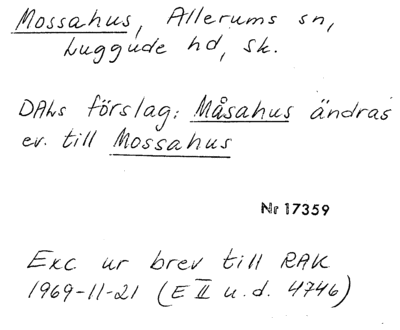 Mossahus, Allerums sn,
Luggude hd, sk.
DALs förslag: Måsahus ändras
ev. till Mossahus
Nr 17359
Exc ur brev till RAK
1969-11-21 (E II u.d. 4746)